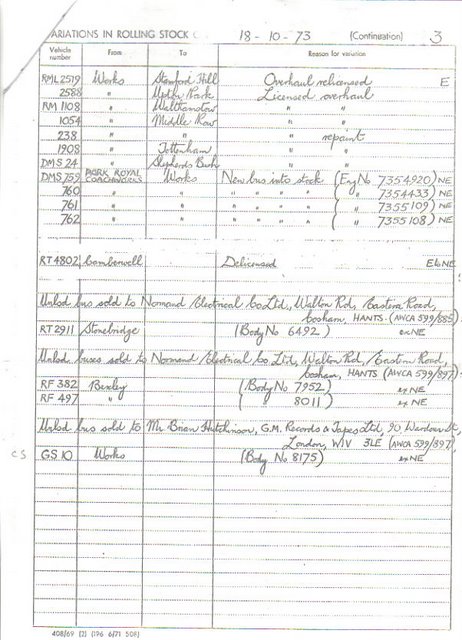 ARIATIONS IN ROLLING STOCK 18 - 10 - 73 (Continuation) 3
Vehicle number From To Reason for variation
RML 2519 Works Stamford Hill Overhaul relicensed E
2588 " Upton Park Licensed overhaul
RM 1108 " Walthamstow " "
1054 " Middle Row " "
238 " " " repaint
1908 " Tottenham " "
DMS 24 " Shepherds Bush " "
DMS 759 PARK ROYAL COACHWORKS Works New bus into stock (Eng No 7354920) NE
760 " " " " " " ( " 7354433) NE
761 " " " " " " ( " 7355109) NE
762 " " " " " " ( " 7355108) NE
RT 4802 Camberwell Delicensed NE
Unlsd. bus sold to Normand Electrical Co Ltd., Walton Rd, Eastern Road,
Cosham, HANTS. (AWCA 599/885)
RT 2911 Stonebridge (Body No 6492) ex NE
Unlsd. buses sold to Normand Electrical Co Ltd, Walton Rd, Eastern Road,
Cosham, HANTS (AWCA 599/897).
RF 382 Bexley (Body No 7952) ex NE
RF 497 " ( " 8011) ex NE
Unlsd bus sold to Mr Brian Hutchinson, G.M. Records & Tapes Ltd, 90 Wardour St,
London, W1V 3LE (AWCA 599/897),
CS GS 10 Works (Body No 8175) ex NE
408/69 (2) (196 6/71 508)